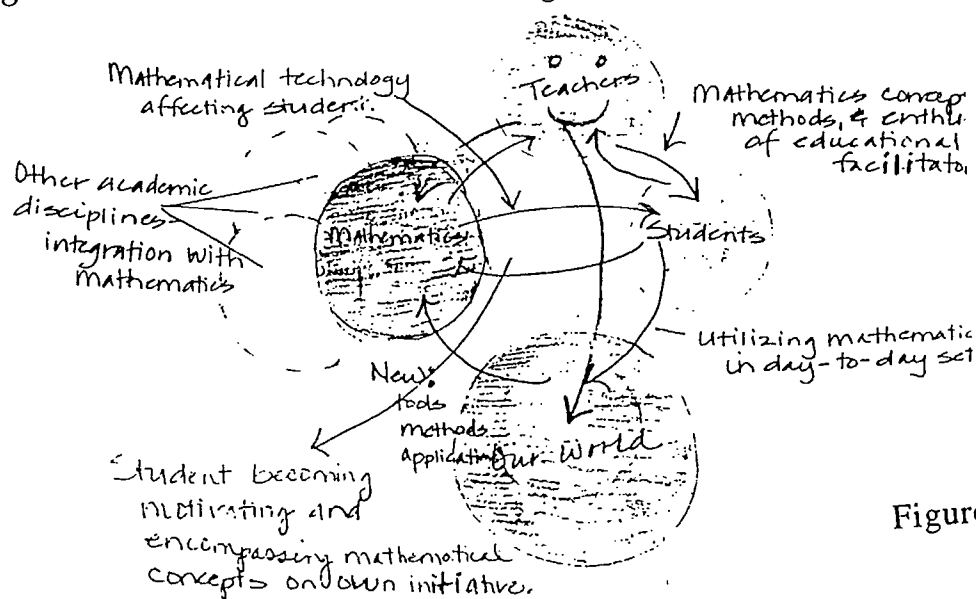 Mathematical technology
affecting student.
Teachers
Mathematics concep
methods, & enthu
of educational
facilitato
Other academic
disciplines
integration with
Mathematics
Mathematics
Students
Utilizing mathematic
in day-to-day set
New:
tools
methods
application
Our World
Student becoming
motivating and
encompassing mathematical
concepts on own initiative.
Figure